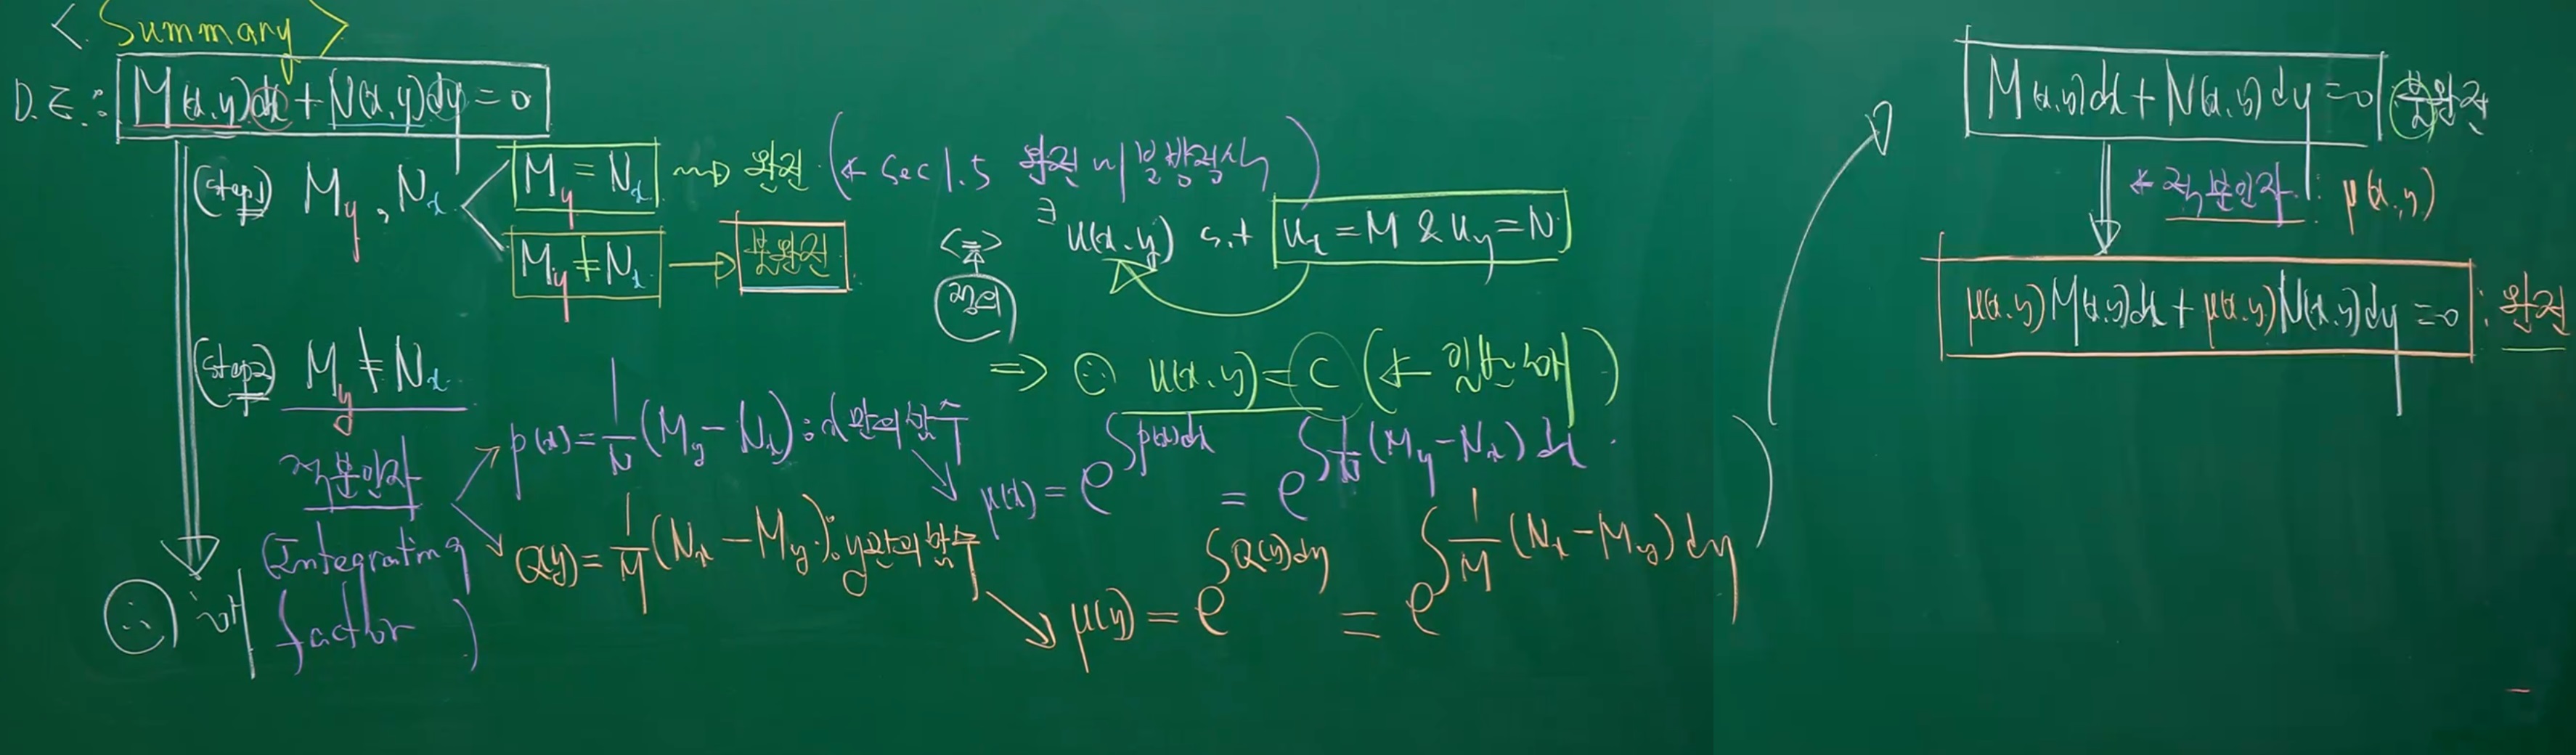 < Summary >
D.E.: M(x,y)dx + N(x,y)dy = 0
(step1) M_y, N_x
M_y = N_x ⇝ 완전 (← Sec 1.5 완전미분방정식)
M_y ≠ N_x → 불완전
⇔ ∃ u(x,y) s.t u_x = M & u_y = N
정의
⇒ ∴ u(x,y) = C (← 일반해)
(step2) M_y ≠ N_x
적분인자
(Integrating factor)
p(x) = 1/N (M_y − N_x) : x만의 함수
μ(x) = e^{∫p(x)dx} = e^{∫1/N (M_y − N_x) dx}
Q(y) = 1/M (N_x − M_y) : y만의 함수
μ(y) = e^{∫Q(y)dy} = e^{∫1/M (N_x − M_y) dy}
∴ 해
M(x,y)dx + N(x,y)dy = 0 불완전
← 적분인자 : μ(x,y)
μ(x,y)M(x,y)dx + μ(x,y)N(x,y)dy = 0 : 완전